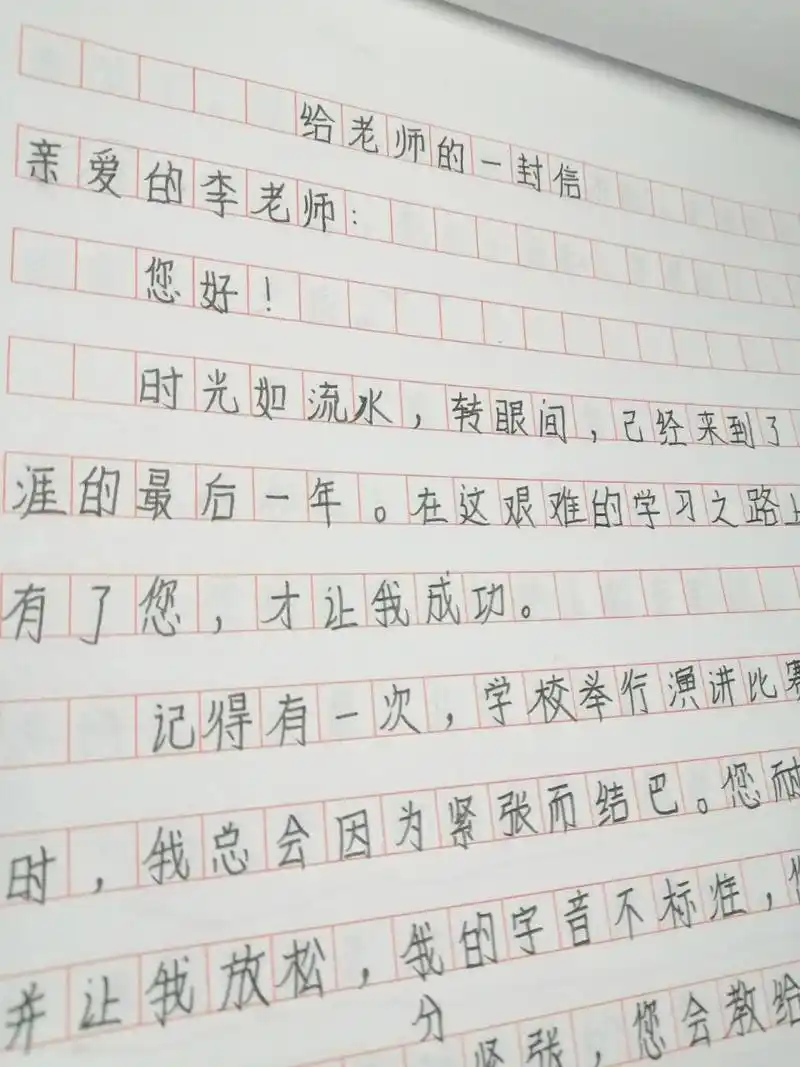 给老师的一封信
亲爱的李老师：
您好！
时光如流水，转眼间，已经来到了
涯的最后一年。在这艰难的学习之路上
有了您，才让我成功。
记得有一次，学校举行演讲比赛
时，我总会因为紧张而结巴。您耐
并让我放松，我的字音不标准，
分
紧张，您会教给